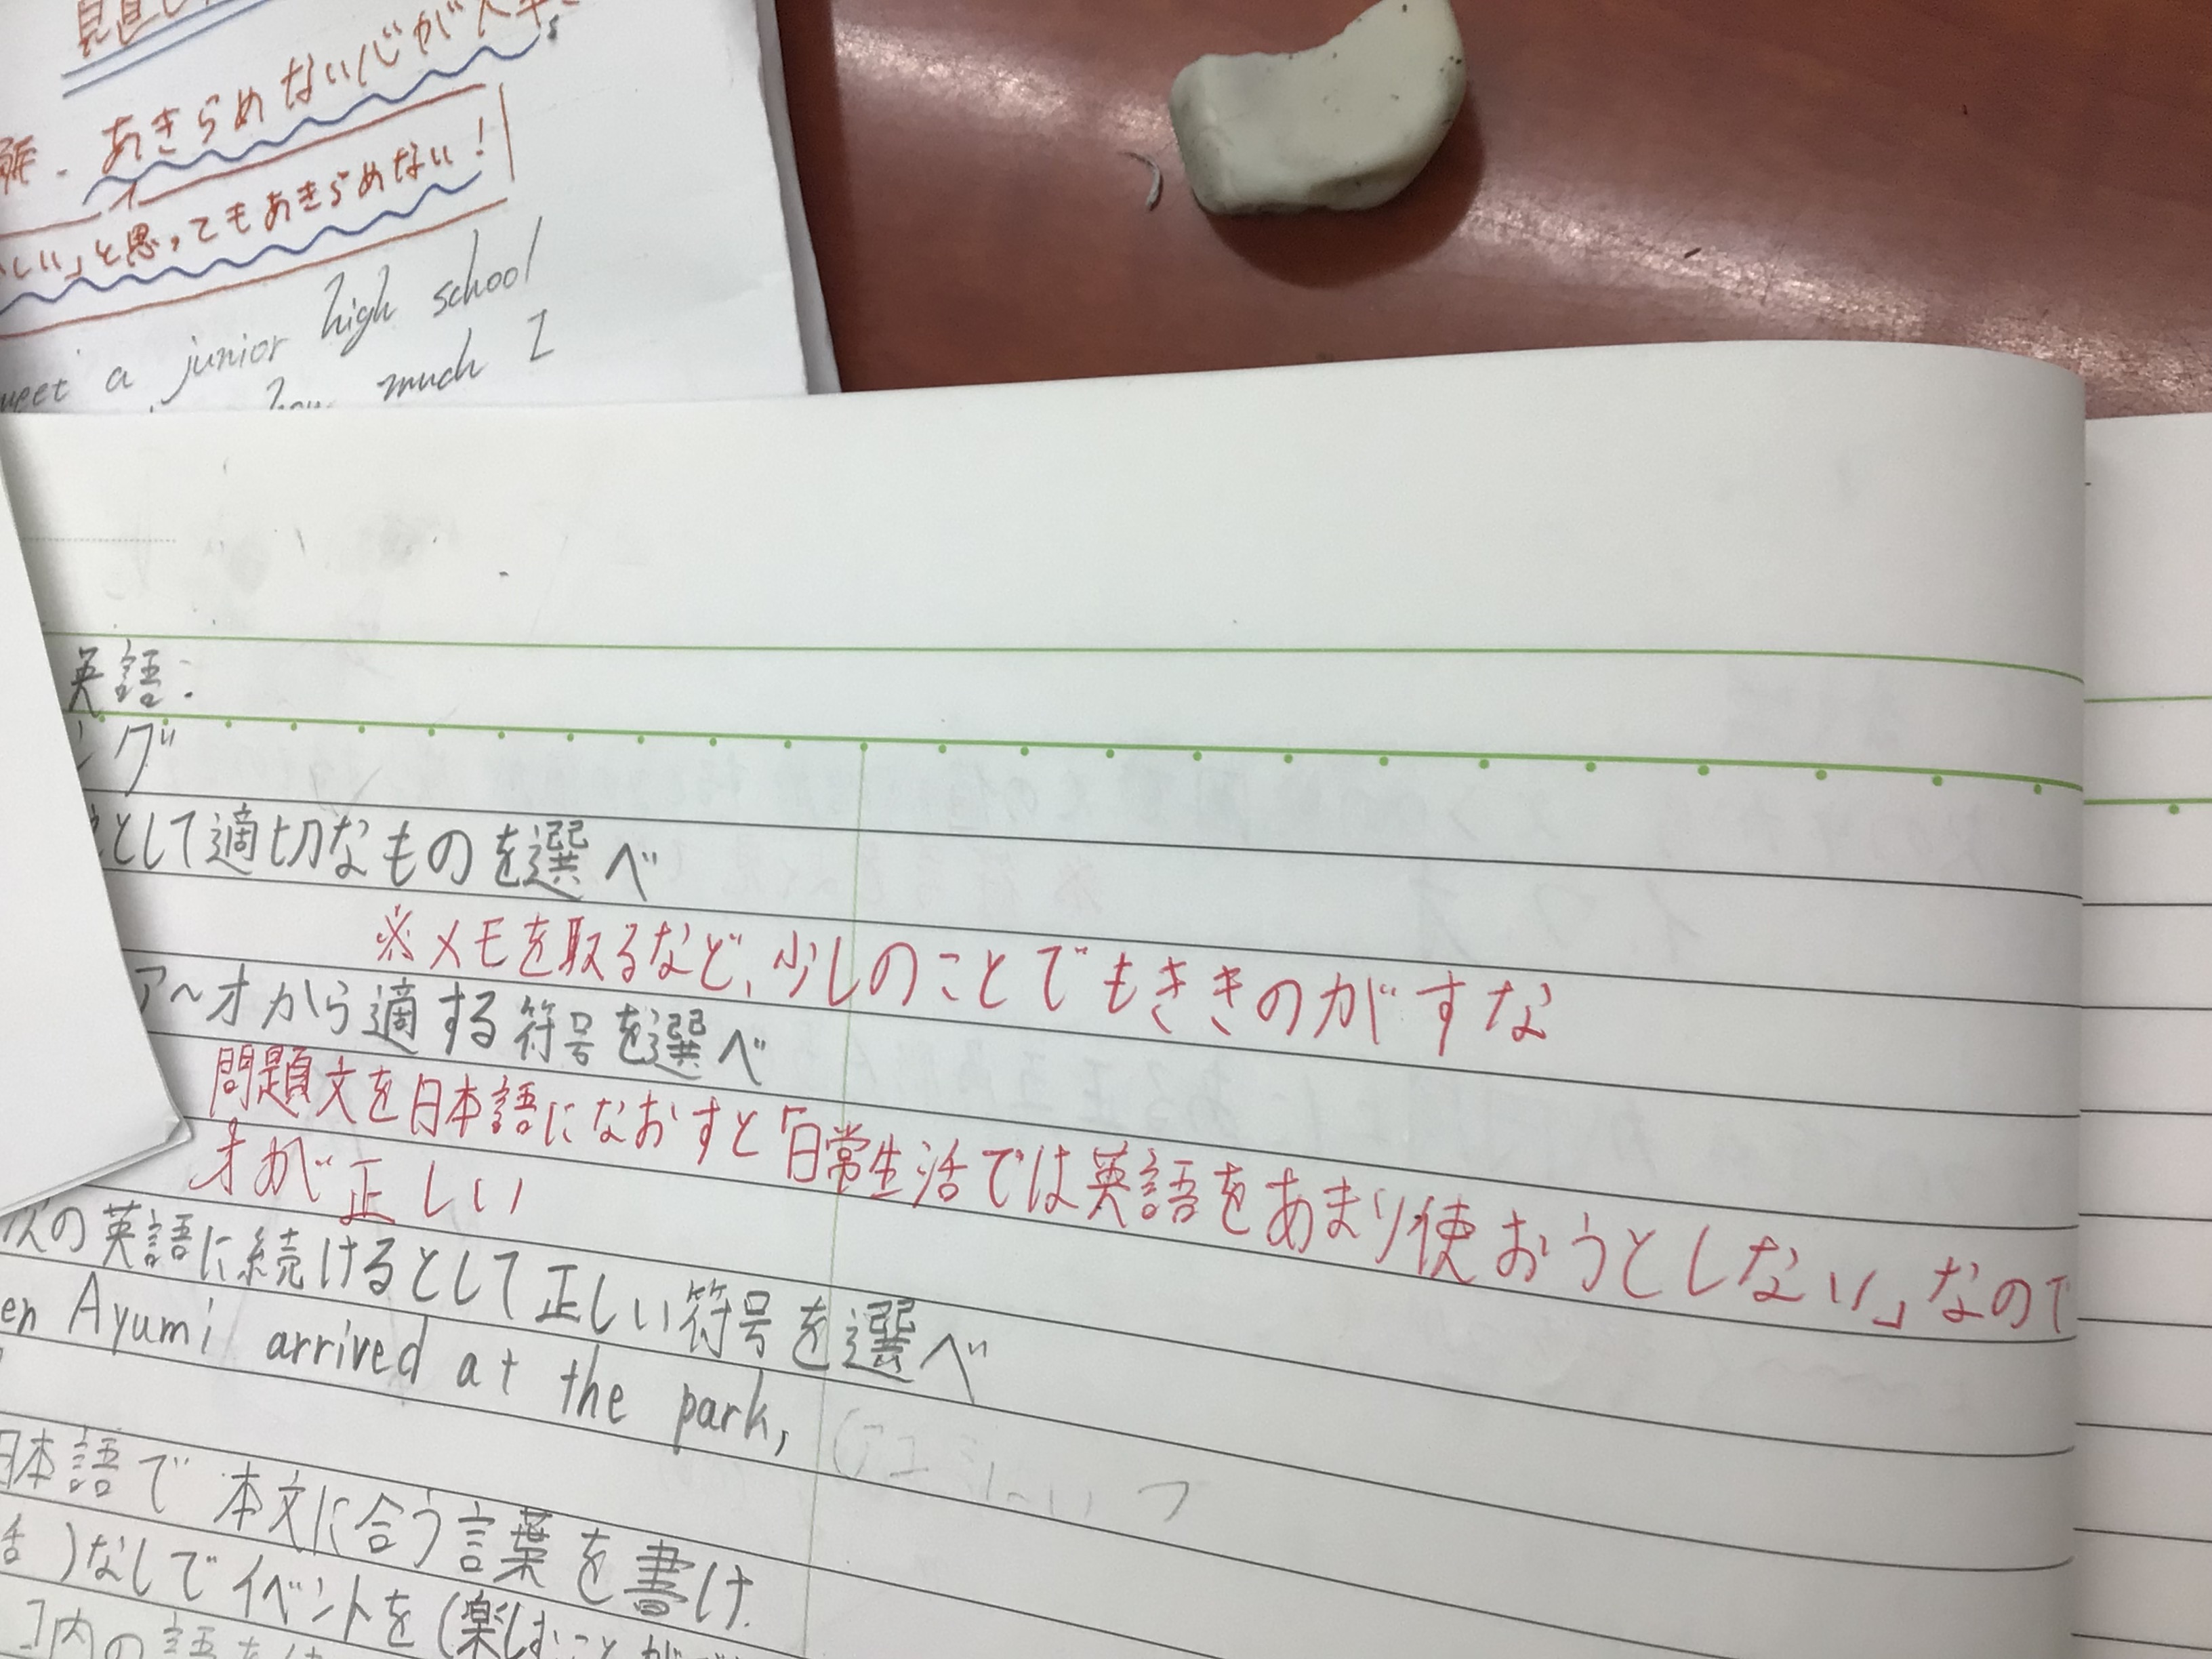 あきらめない心が
解. あきらめない心が
しい」と思ってもあきらめない!
meet a junior high school
how much I
英語:
ング
として適切なものを選べ
※メモを取るなど、少しのことでもききのがすな
ア〜オから適する符号を選べ
問題文を日本語になおすと「日常生活では英語をあまり使おうとしない」なので
オが正しい
次の英語に続けるとして正しい符号を選べ
en Ayumi arrived at the park,
日本語で本文に合う言葉を書け.
話)なしでイベントを(楽しむことが
内の語を